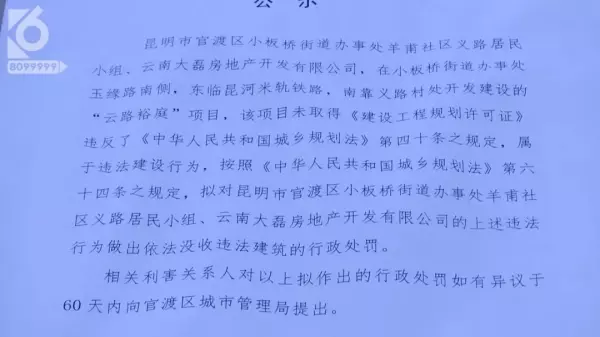 公 示
K6
8099999
昆明市官渡区小板桥街道办事处羊甫社区义路居民
小组、云南大磊房地产开发有限公司，在小板桥街道办事处
玉缘路南侧，东临昆河米轨铁路，南靠义路村处开发建设的
“云路裕庭”项目，该项目未取得《建设工程规划许可证》
违反了《中华人民共和国城乡规划法》第四十条之规定，属
于违法建设行为，按照《中华人民共和国城乡规划法》第六
十四条之规定，拟对昆明市官渡区小板桥街道办事处羊甫社
区义路居民小组、云南大磊房地产开发有限公司的上述违法
行为做出依法没收违法建筑的行政处罚。
相关利害关系人对以上拟作出的行政处罚如有异议于
60 天内向官渡区城市管理局提出。